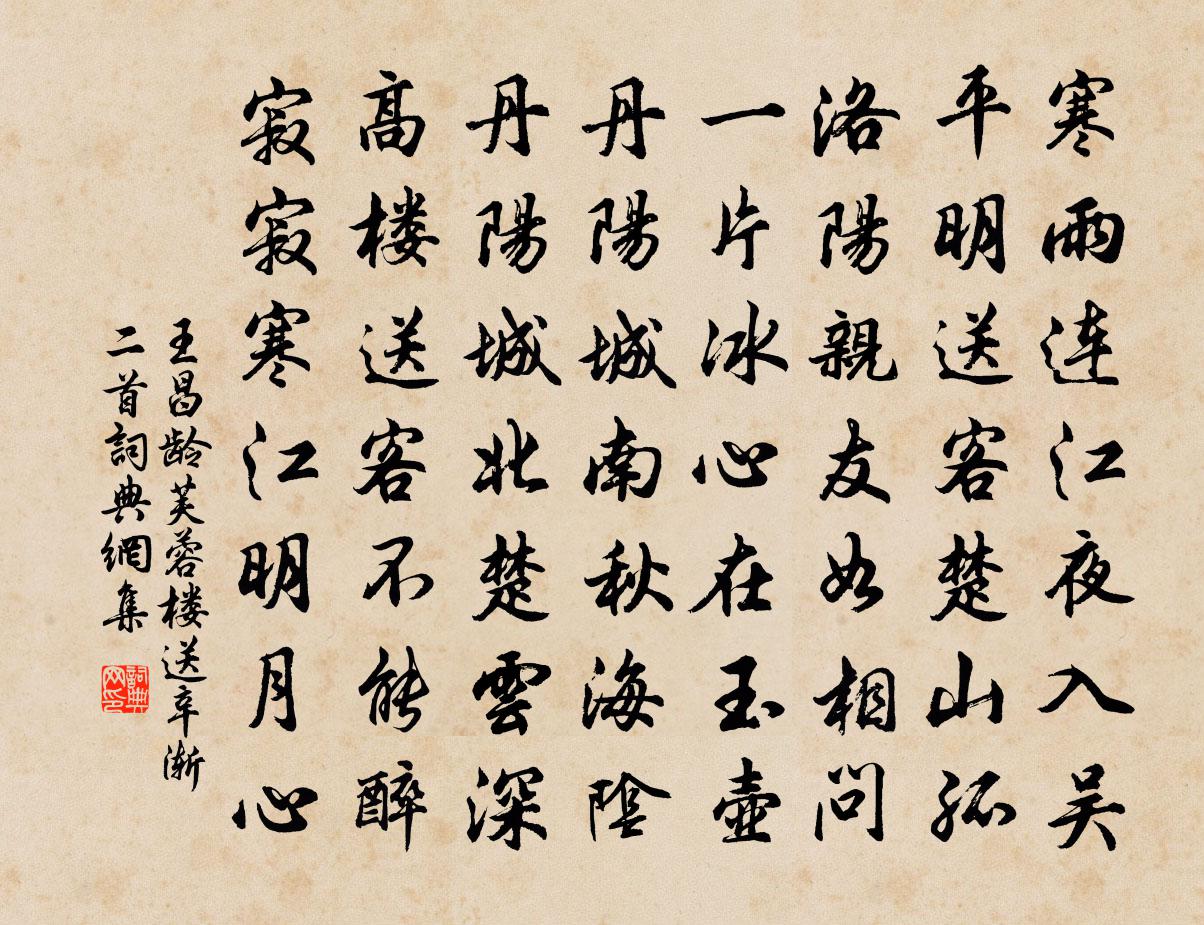 寒雨連江夜入吴
平明送客楚山孤
洛陽親友如相問
一片冰心在玉壺
丹陽城南秋海陰
丹陽城北楚雲深
高楼送客不能醉
寂寂寒江明月心
王昌龄芙蓉楼送辛渐
二首詞典網集
詞典
网印